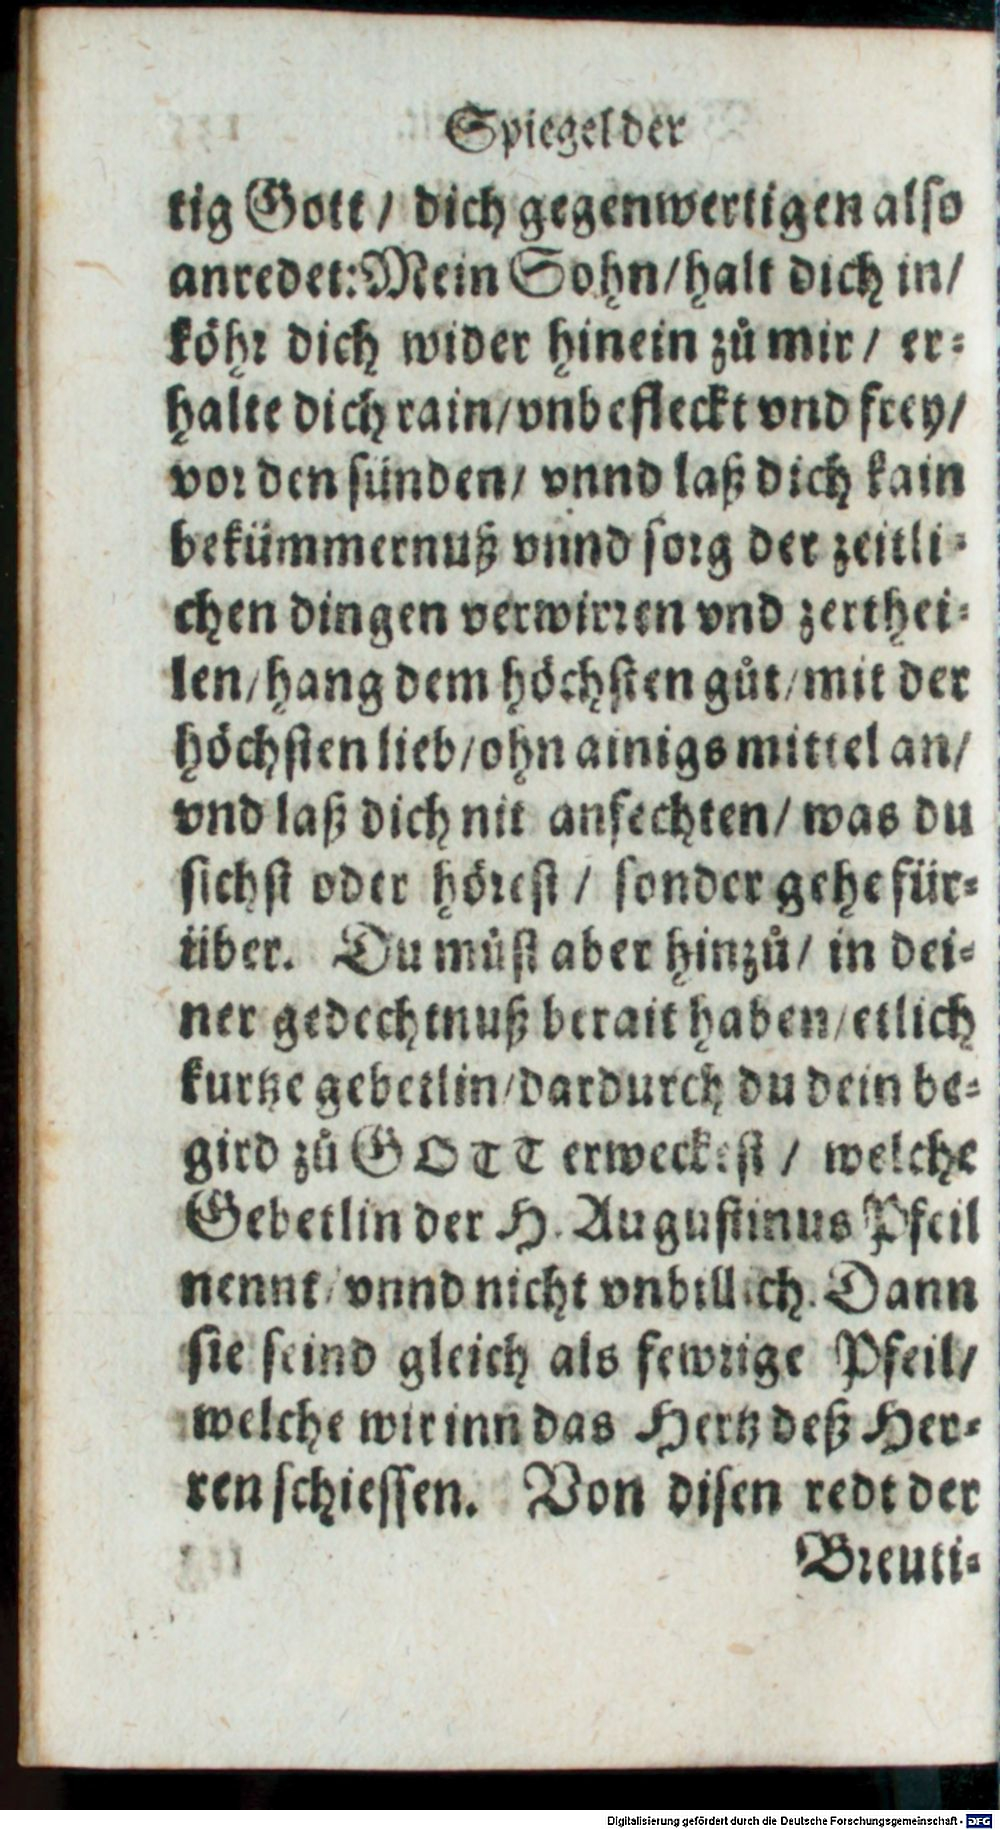 Spiegel der
tig Gott / dich gegenwertigen also
anredet: Mein Sohn / halt dich in /
köhr dich wider hinein zů mir / er-
halte dich rain / vnbefleckt vnd frey /
vor den sünden / vnnd laß dich kain
bekümmernuß vnnd sorg der zeitli-
chen dingen verwirren vnd zerthei-
len / hang dem höchsten gůt / mit der
höchsten lieb / ohn ainigs mittel an /
vnd laß dich nit anfechten / was du
sichst oder hörest / sonder gehe für-
über. Du můst aber hinzů / in dei-
ner gedechtnuß berait haben / etlich
kurtze gebetlin / dardurch du dein be-
gird zů GOTT erweckest / welche
Gebetlin der H. Augustinus Pfeil
nennt / vnnd nicht vnbillich. Dann
sie seind gleich als fewrige Pfeil /
welche wir inn das Hertz deß Her-
ren schiessen. Von disen redt der
Breuti-
Digitalisierung gefördert durch die Deutsche Forschungsgemeinschaft - DFG